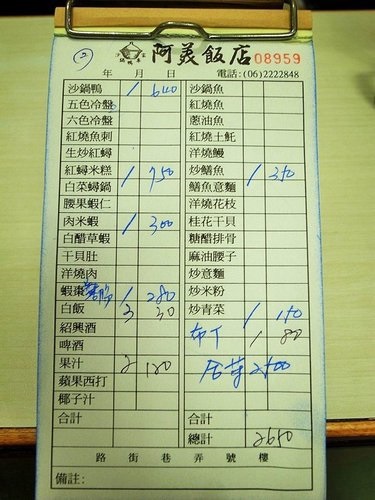 ② 阿美飯店 08959
年 月 日 電話:(06)2222848
沙鍋鴨 1 640 沙鍋魚
五色冷盤 紅燒魚
六色冷盤 蔥油魚
紅燒魚刺 紅燒土魠
生炒紅蟳 洋燒鰻
紅蟳米糕 1 750 炒鱔魚 1 350
白菜蟳鍋 鱔魚意麵
腰果蝦仁 洋燒花枝
肉米蝦 1 300 桂花干貝
白醋草蝦 糖醋排骨
干貝肚 麻油腰子
洋燒肉 炒意麵
蝦棗 1 280 炒米粉
白飯 3 30 炒青菜 1 150
紹興酒 布丁 1 80
啤酒
果汁 2 120
蘋果西打
椰子汁
合計 合計
總計 2650
路 街 巷 弄 號 樓
備註: